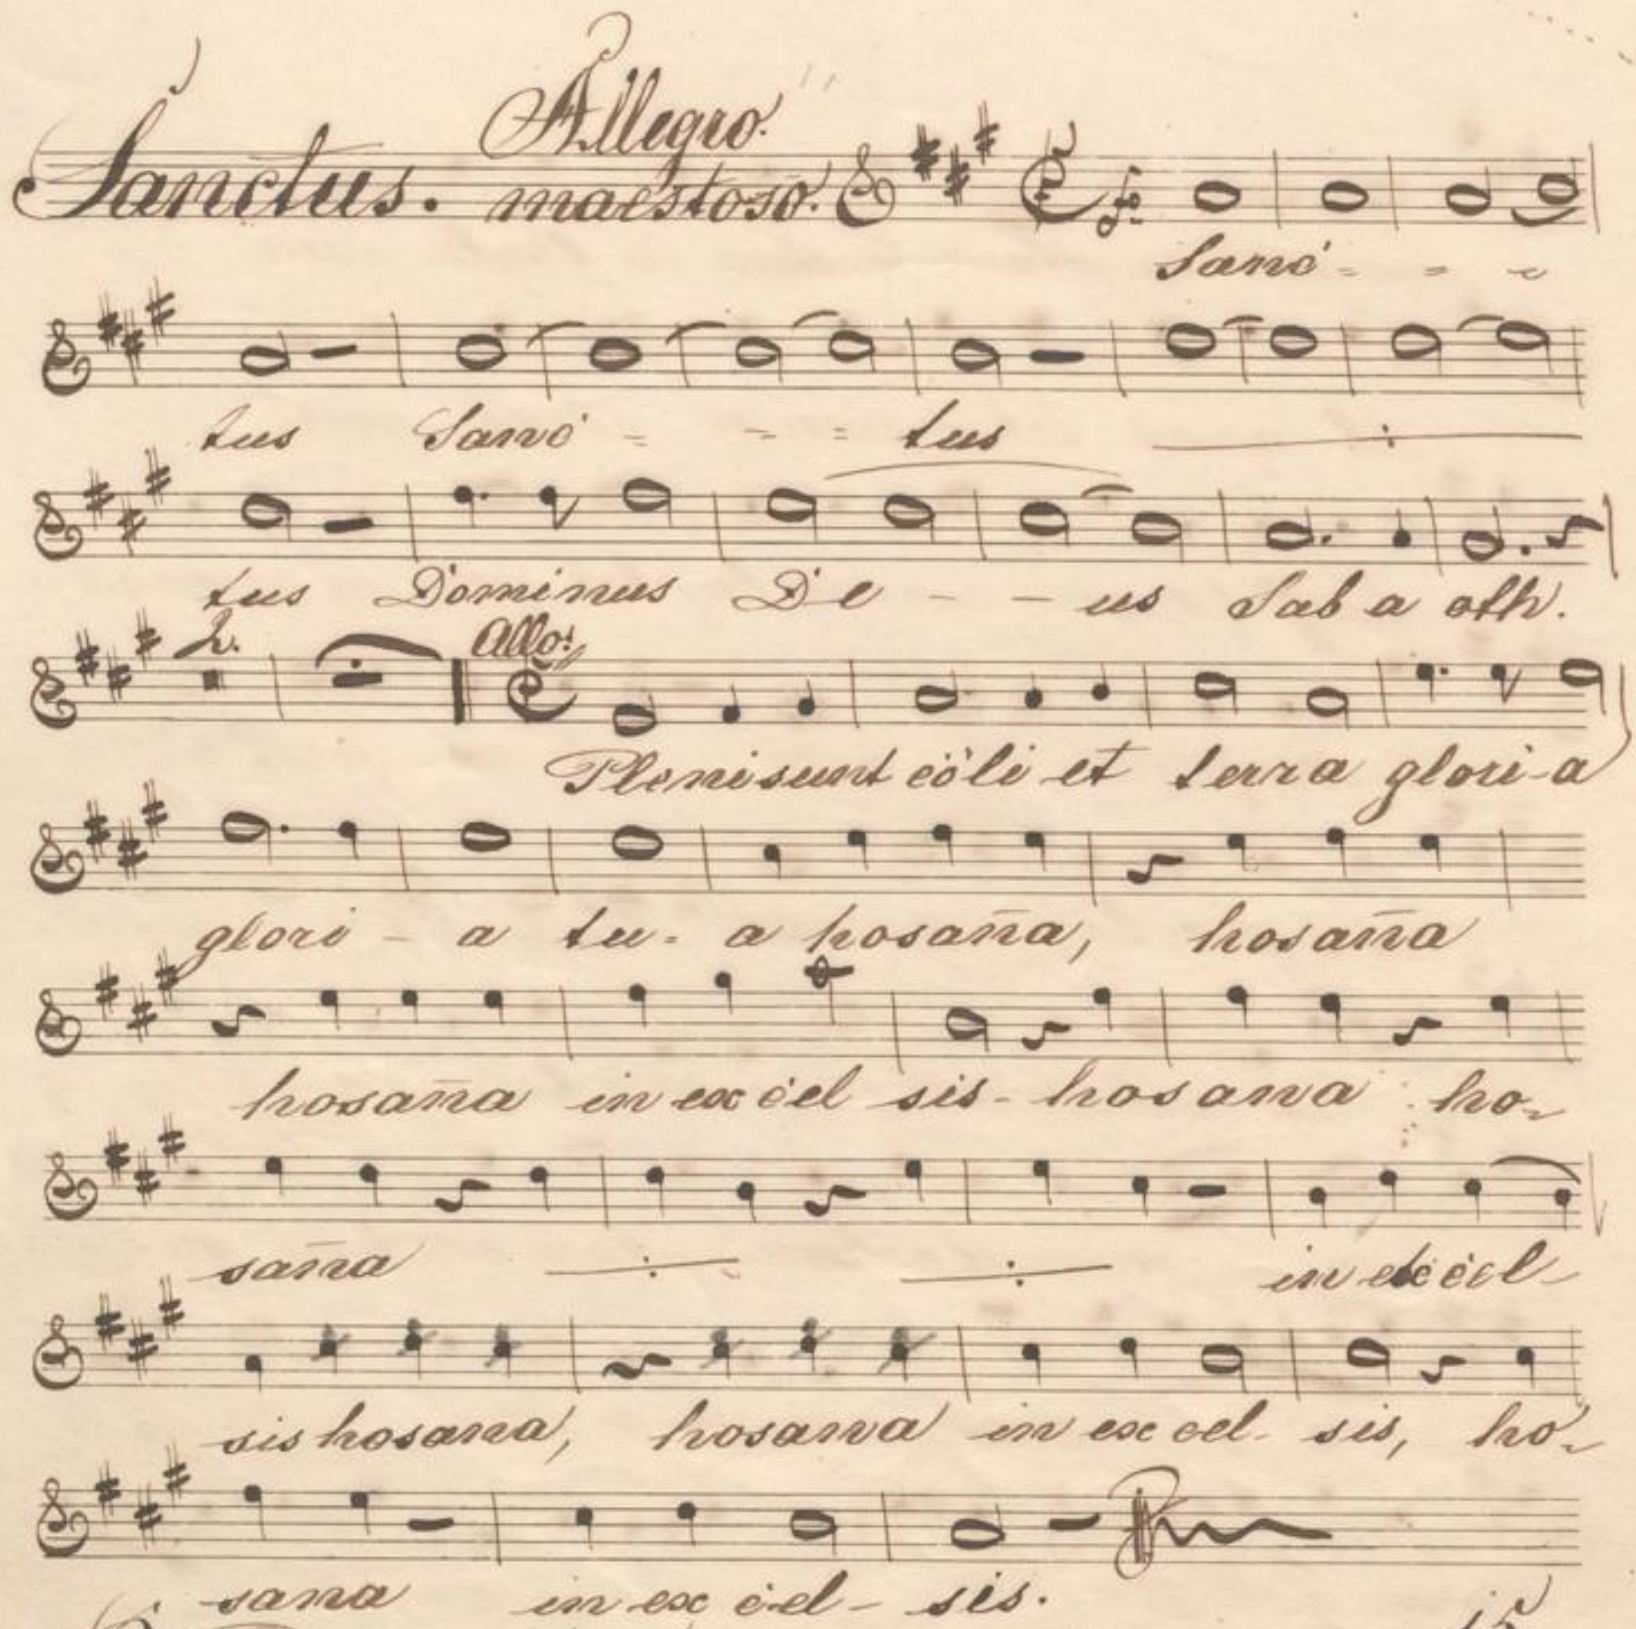 Sanctus. Allegro maestoso. fo:
Sanc - - -
tus Sanc - - - tus
tus Dominus De - - us Sab a oth.
2. Allo:
Pleni sunt cöli et terra glori-a
glori - a tu - a hosan̄a, hosan̄a
hosan̄a in ex cel sis - hosana ho-
san̄a in ex cel-
sis hosana, hosana in ex cel- sis, ho-
sana in ex cel - sis.